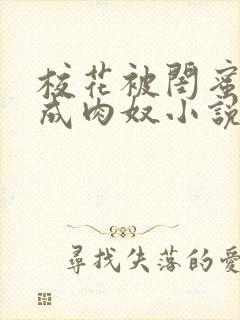 校花被閨蜜
成肉奴小說
尋找失落的愛